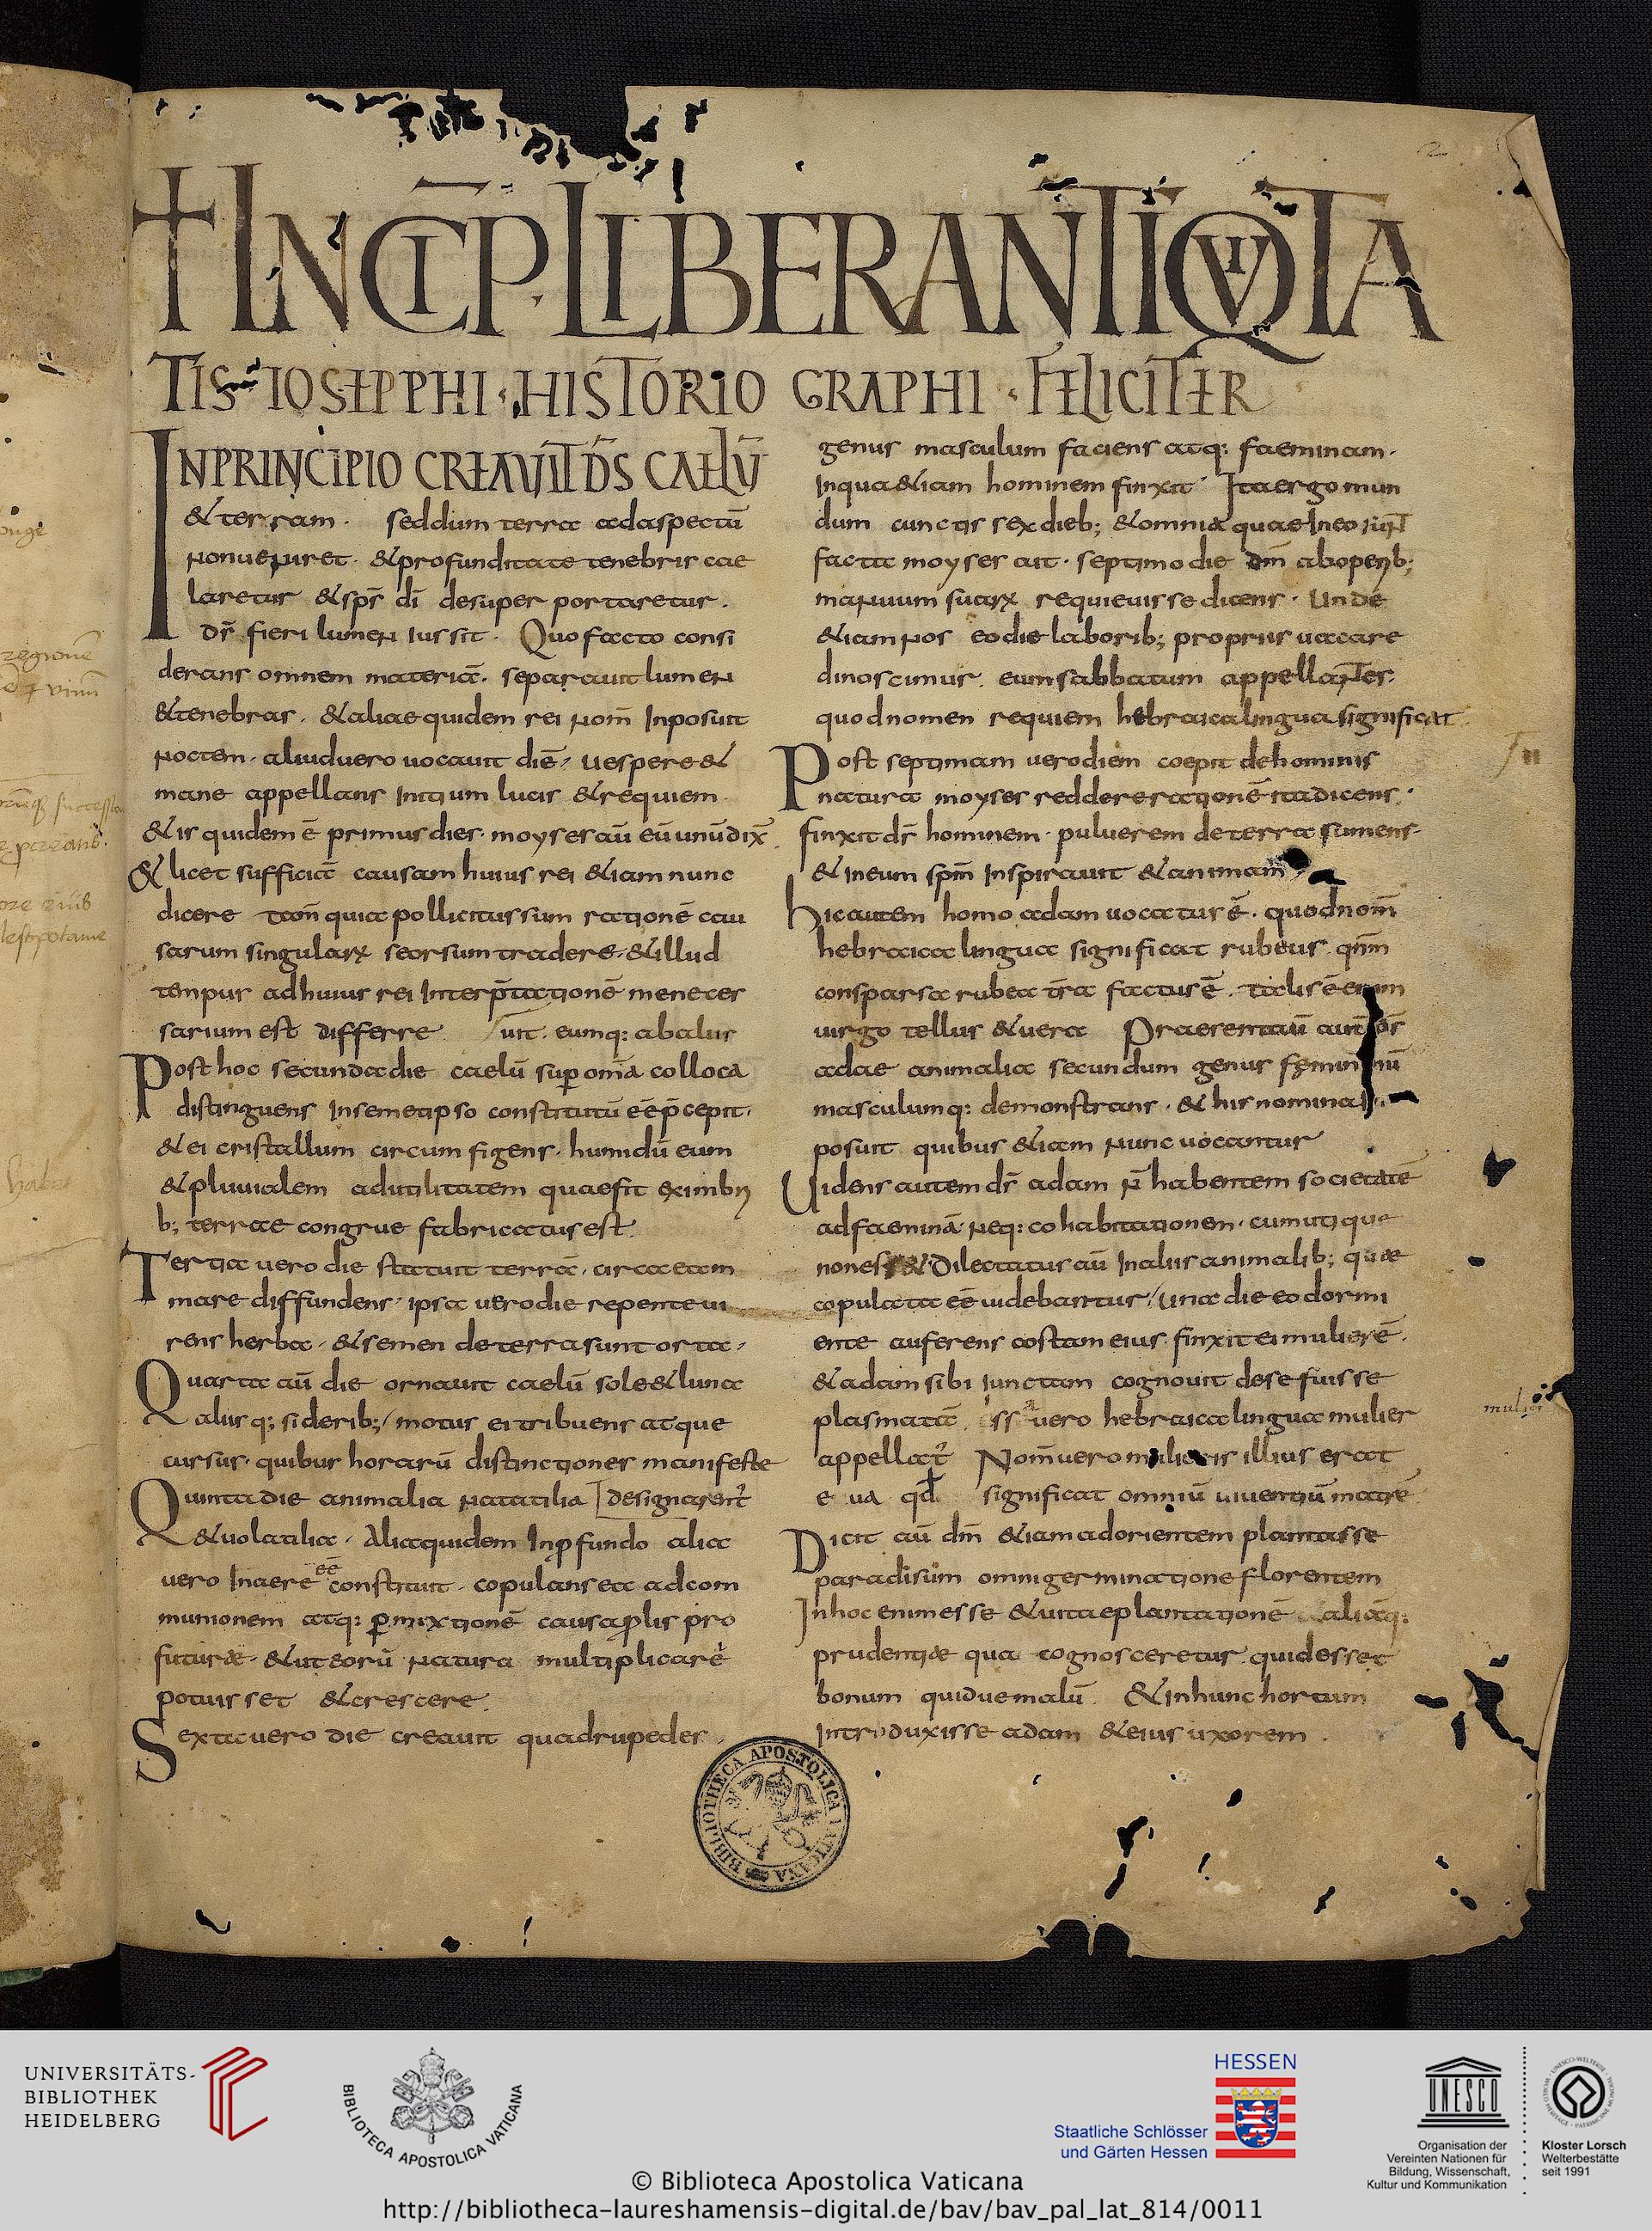 2
† INCIP̄ LIBER ANTIQVITA
TIS IOSEPPHI · HISTORIO GRAPHI · FELICITER
INPRINCIPIO CREAVIT D̄S CAELŪ
& terram. sed dum terra ad aspectū
non ueniret. & profunditate tenebris cae
laretur & sp̄s dī desuper portaretur.
d̄s fieri lumen iussit. Quo facto consi
derans omnem materiā. separauit lumen
& tenebras. & aliae quidem rei nom̄ Inposuit
noctem. aliud uero uocauit diē. uespere &
mane appellans Initium lucis & requiem
& is quidem ē primus dies. moyses aū eū unū dix̄
& licet sufficiā causam huius rei &iam nunc
dicere tam̄ quia pollicitus sum rationē cau
sarum singularꝝ seorsum tradere. & illud
tempus ad huius rei Interp̄tationē me neces
sarium est differre / uit. eumq: ab aliis
Post hoc secunda die caelū suꝑ om̄a colloca
distinguens In semetipso constitutū eē p̄cepit.
& ei cristallum circum figens. humidū eum
& pluuialem ad utilitatem quae fit ex imbri
b; terrae congrue fabricatus est.
Tertia uero die statuit terrā. circa eam
mare diffundens. ipsa uero die repente ui
rens herba. & semen de terra sunt orta.
Quarta aū die ornauit caelū sole & luna
aliisq; siderib; motus ei tribuens atque
cursus. quibus horarū distinctiones manifeste
Quinta die animalia natatilia [designarent᷑
& uolatilia. Alia quidem In ꝓfundo alia
uero In aere eē constituit. copulans ea ad com
munionem atq: ꝑmixtionē causa ꝓlis pro
futurae. & ut eorū natura multiplicare᷑
potuisset & crescere.
Sexta uero die creauit quadrupedes.
genus masculum faciens atq: faeminam.
In qua &iam hominem finxit. Ita ergo mun
dum cunctis sex dieb; & omnia quae In eo sunt
facta moyses ait. septimo die dm̄ ab operib;
manuum suarꝝ requieuisse dicens. Unde
&iam nos eo die laborib; propriis uacare
dinoscimus. eum sabbatum appellantes.
quod nomen requiem hebraica lingua significat
Post septimam uero diem coepit de hominis
natura moyses reddere rationē ita dicens.
finxit d̄s hominem. puluerem de terra sumens.
& In eum sp̄m Inspirauit & animam
hic autem homo adam uocatur ē. quod nom̄
hebraica lingua significat rubeus. qnm̄
consparsa rubea tr̄a factus ē. talis ē enim
uirgo tellus & uera Praesentauit autem d̄s
adae animalia secundum genus femininū
masculumq: demonstrans. & his nomina
posuit quibus &iam nunc uocantur
Uidens autem d̄s adam n̄ habentem societatē
ad faeminā neq: cohabitationem. cum utique
non esset & dilectatus aū In aliis animalib; quae
copulata eē uidebantur / una die eo dormi
ente auferens costam eius. finxit ei mulierē.
& adam sibi iunctam cognouit de se fuisse
plasmatā. issa uero hebraica lingua mulier
appellat᷑ Nom̄ uero mulieris illius erat
eua qd̄ significat omniū uiuentiū matrē
Dicit aū dm̄ &iam ad orientem plantasse
paradisum omni germinatione florentem
In hoc enim esse & uitae plantationē & aliāq:
prudentiae qua cognosceretur. quid esset
bonum quidue malū. & In hunc hortum
Introduxisse adam & eius uxorem.
mulier
BIBLIOTHECA APOSTOLICA VATICANA
UNIVERSITÄTS-
BIBLIOTHEK
HEIDELBERG
BIBLIOTECA APOSTOLICA VATICANA
HESSEN
Staatliche Schlösser
und Gärten Hessen
UNESCO
Organisation der
Vereinten Nationen für
Bildung, Wissenschaft,
Kultur und Kommunikation
Kloster Lorsch
Welterbestätte
seit 1991
© Biblioteca Apostolica Vaticana
http://bibliotheca-laureshamensis-digital.de/bav/bav_pal_lat_814/0011